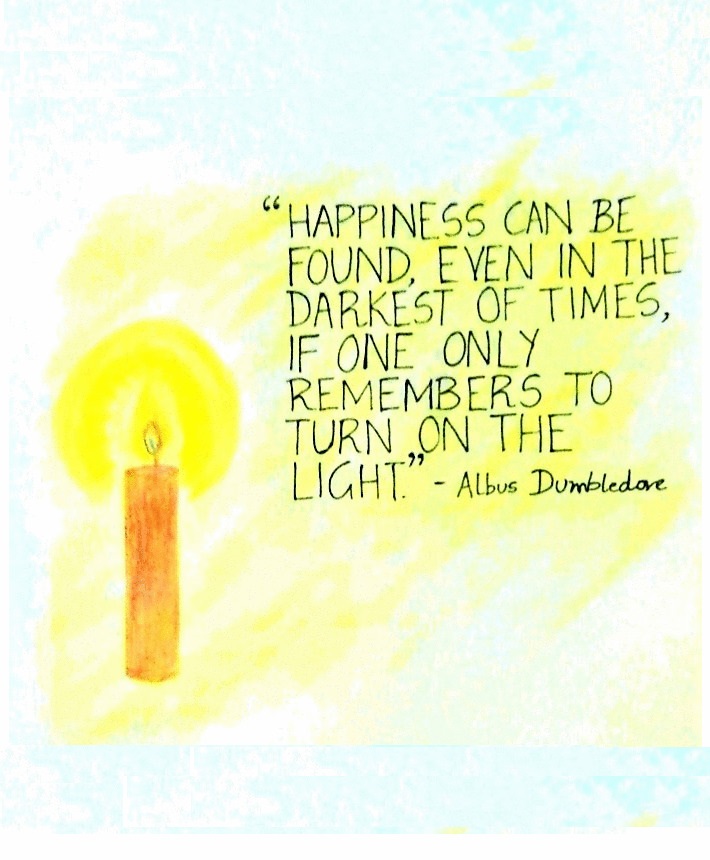 “HAPPINESS CAN BE
FOUND, EVEN IN THE
DARKEST OF TIMES,
IF ONE ONLY
REMEMBERS TO
TURN ON THE
LIGHT.” - Albus Dumbledore